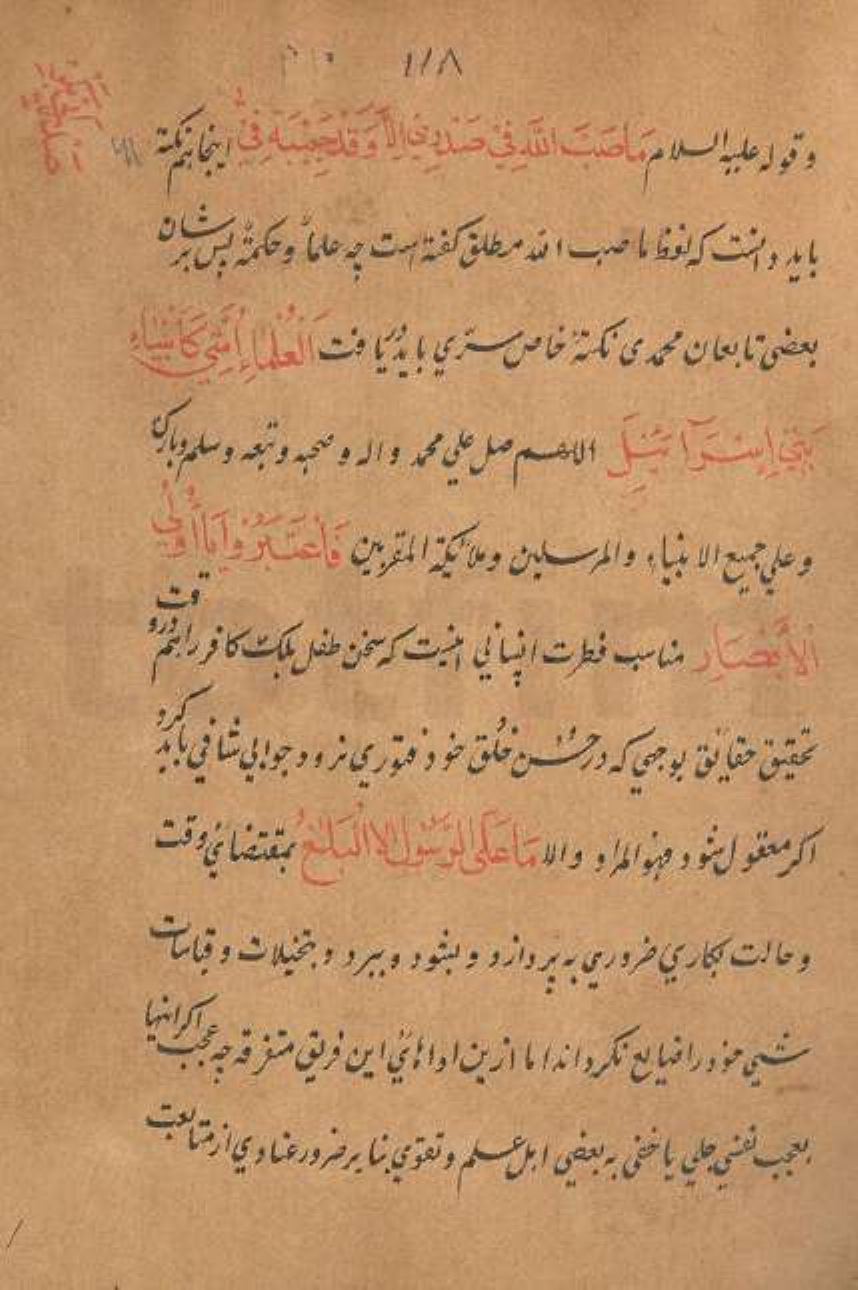 ۱۱۸
وقوله علیه السلام مَا صَبَّ اللّهَ فِیْ صَدْرِیْ اِلَّا وَقَدْ صَبَبْتَهُ فِیْ اینجا هم نکتهٔ
باید دانست که لفظ ما صب الله مطلق گفته است چه علماً و حکمةً پس بر شان
بعضی تابعان محمدی نکتهٔ خاص ستری باید دریافت اَلْعُلَمَاءِ اُمَّتِي كَاَنْبِيَاءِ
بَنِي اِسْرَآئِيْلَ اللهم صل علي محمد و اله و صحبه و تبعه و سلم و بارک
و علي جميع الانبياء والمرسلين وملائكة المقربين فَاعْتَبِرُوْا يَا اُولِي
الْاَبْصَارِ مناسب فطرت انسانی اینست که سخن طفل بلک کافر را هم در وقت
تحقیق حقائق بوجهی که در حسن خلق خود فتوری نرود جوابی شافی باید کرد
اکر معقول شود فهو المراد والا مَا عَلَى الرَّسُوْلِ اِلَّا الْبَلٰغُ بمقتضائی وقت
و حالت بکاری ضروری به پردازد و بشود و ببرد و بتخیلات و قیاسات
شبی خود را ضایع نکرداند اما ازین اداهائی این فریق متفرقه چه عجب اکر اینها
بعجب نفسی جلی یا خفی به بعضی اهل علم و تقوی بنا بر ضرور عنادی از متابعت